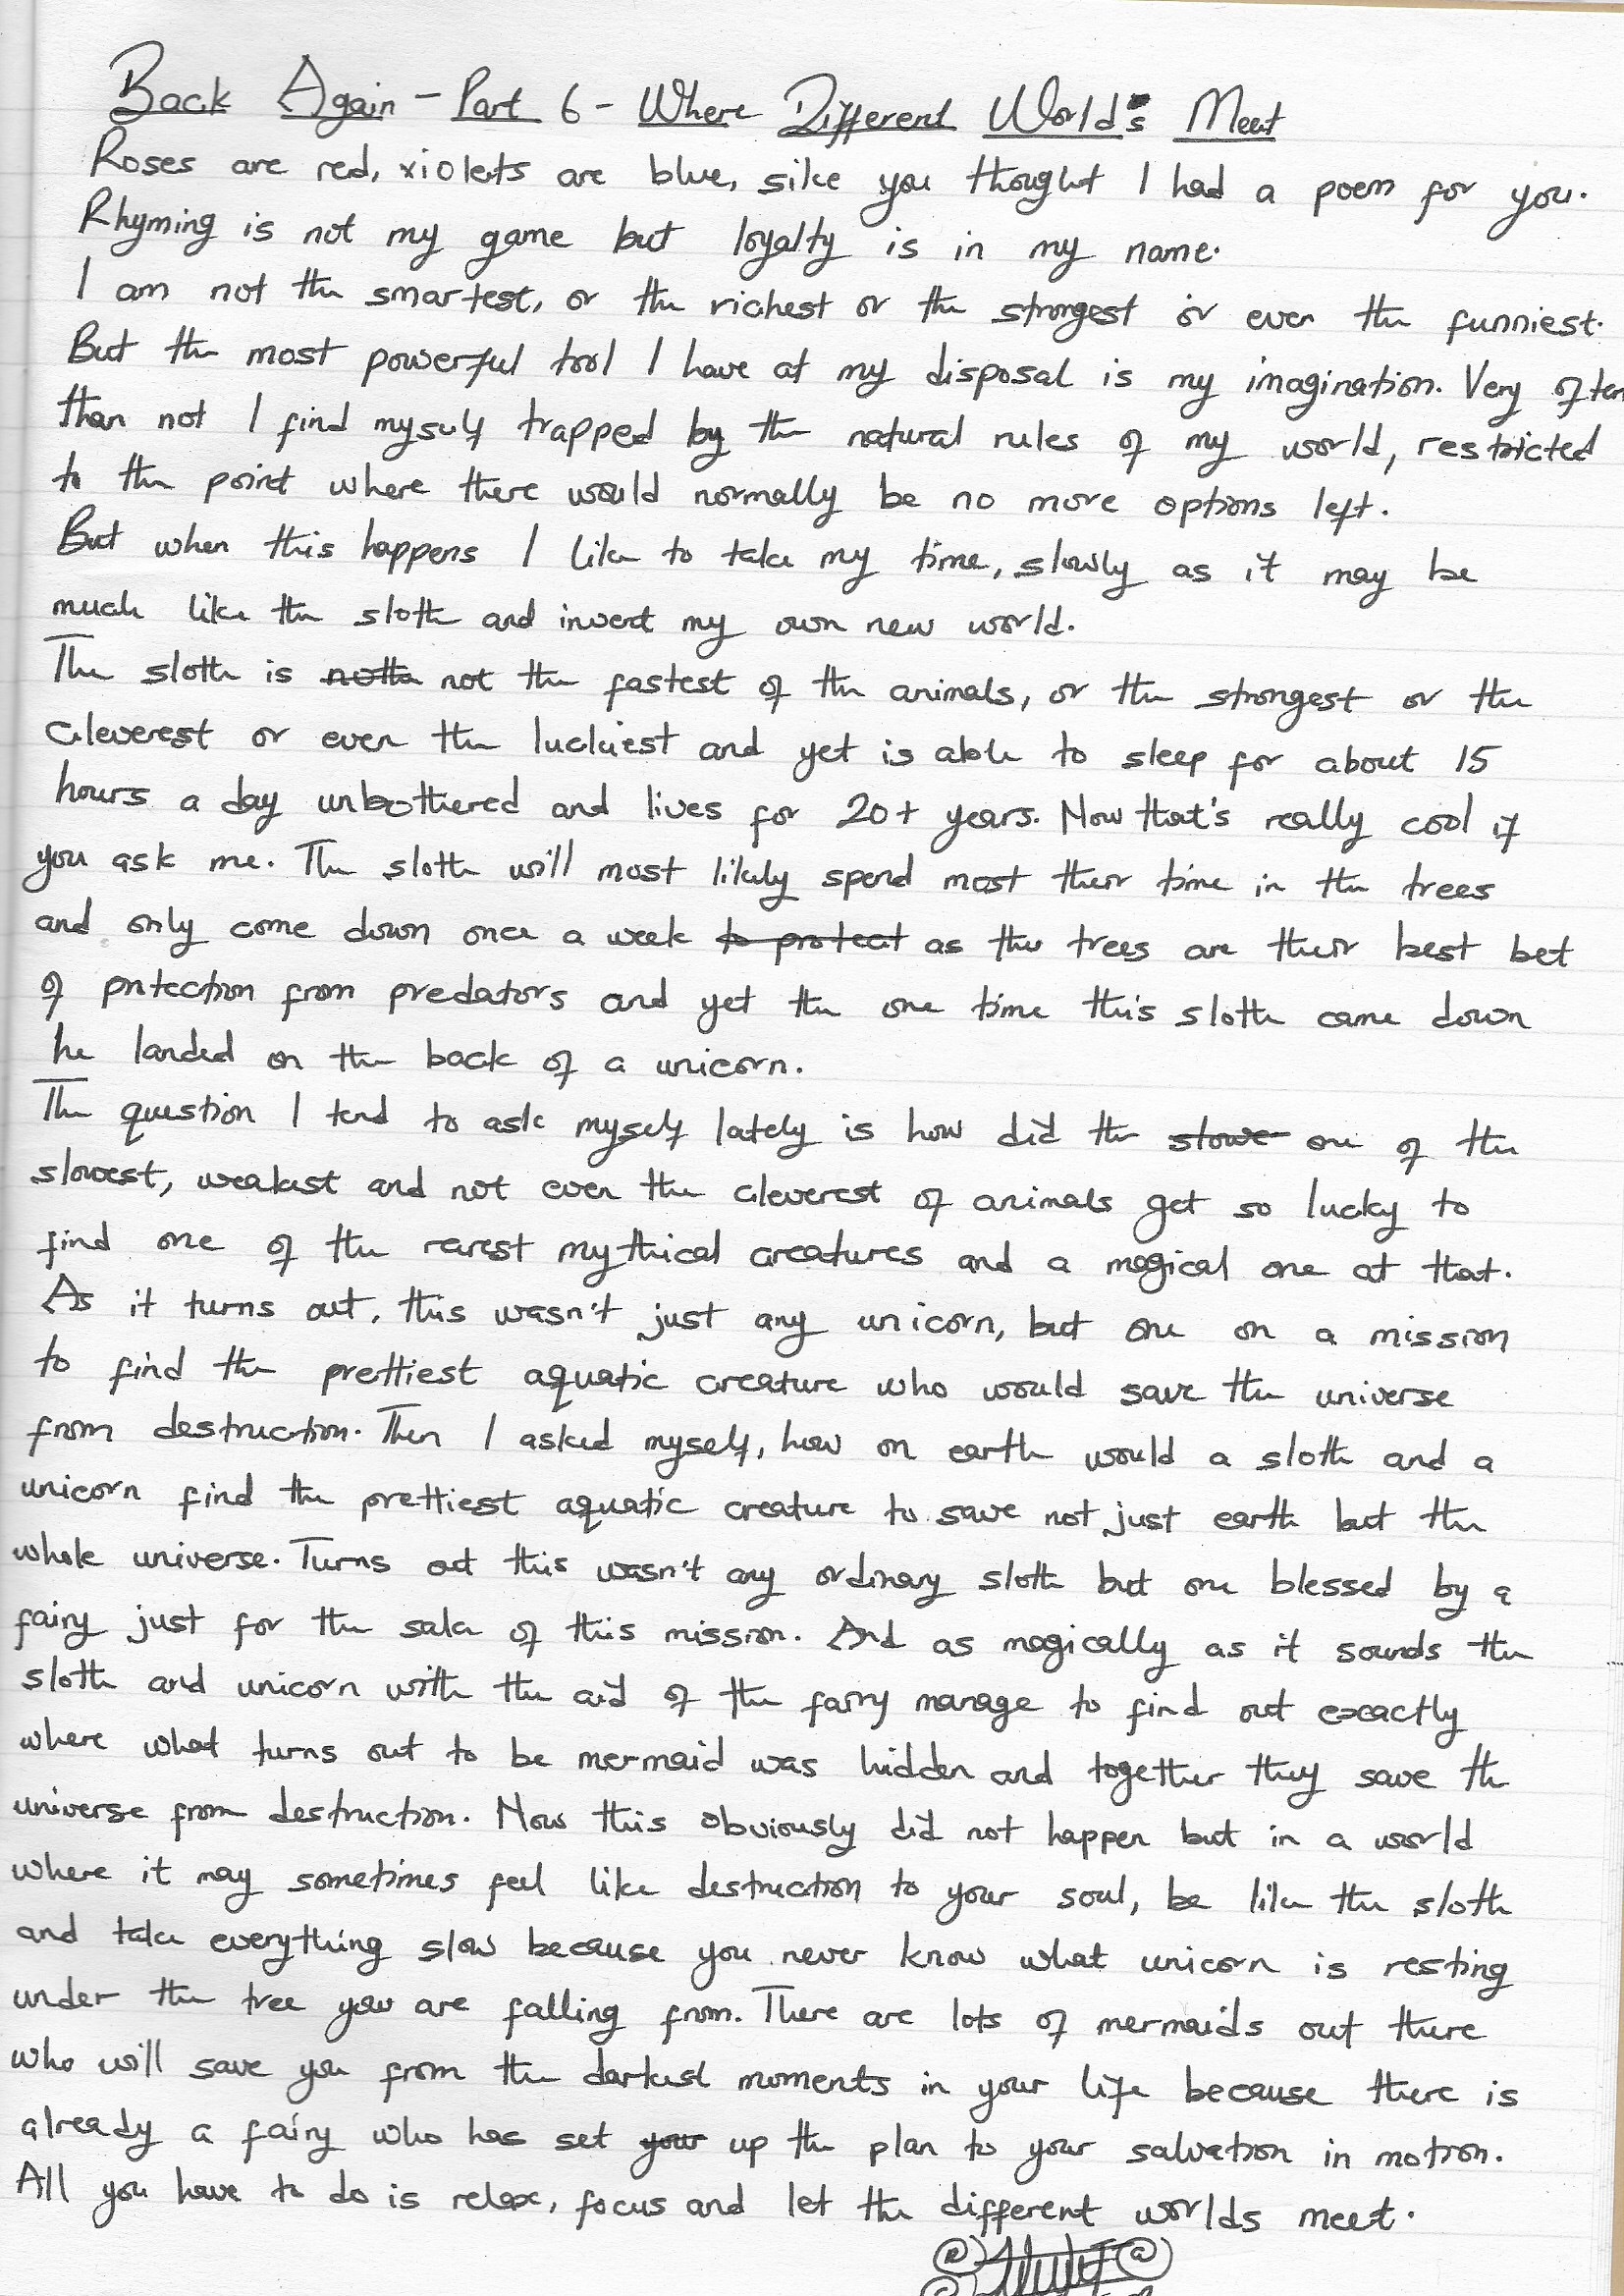 Back Again - Part 6 - Where Different World's Meet
Roses are red, violets are blue, sike you thought I had a poem for you.
Rhyming is not my game but loyalty is in my name.
I am not the smartest, or the richest or the strongest or even the funniest.
But the most powerful tool I have at my disposal is my imagination. Very often
than not I find myself trapped by the natural rules of my world, restricted
to the point where there would normally be no more options left.
But when this happens I like to take my time, slowly as it may be
much like the sloth and invent my own new world.
The sloth is notta not the fastest of the animals, or the strongest or the
cleverest or even the luckiest and yet is able to sleep for about 15
hours a day unbothered and lives for 20+ years. Now that's really cool if
you ask me. The sloth will most likely spend most their time in the trees
and only come down once a week to protect as the trees are their best bet
of protection from predators and yet the one time this sloth came down
he landed on the back of a unicorn.
The question I tend to ask myself lately is how did the slowe one of the
slowest, weakest and not even the cleverest of animals get so lucky to
find one of the rarest mythical creatures and a magical one at that.
As it turns out, this wasn't just any unicorn, but one on a mission
to find the prettiest aquatic creature who would save the universe
from destruction. Then I asked myself, how on earth would a sloth and a
unicorn find the prettiest aquatic creature to save not just earth but the
whole universe. Turns out this wasn't any ordinary sloth but one blessed by a
fairy just for the sake of this mission. And as magically as it sounds the
sloth and unicorn with the aid of the fairy manage to find out exactly
where what turns out to be mermaid was hidden and together they save the
universe from destruction. Now this obviously did not happen but in a world
where it may sometimes feel like destruction to your soul, be like the sloth
and take everything slow because you never know what unicorn is resting
under the tree you are falling from. There are lots of mermaids out there
who will save you from the darkest moments in your life because there is
already a fairy who has set your up the plan to your salvation in motion.
All you have to do is relax, focus and let the different worlds meet.